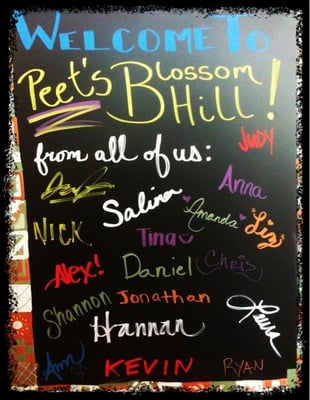 WELCOME TO
Peet's Blossom Hill!
from all of us:
Judy
Anna
Salina
Amanda
Liz
NICK
Tina
Alex!
Daniel
Chris
Shannon
Jonathan
Laura
Hannah
Ann
KEVIN
RYAN